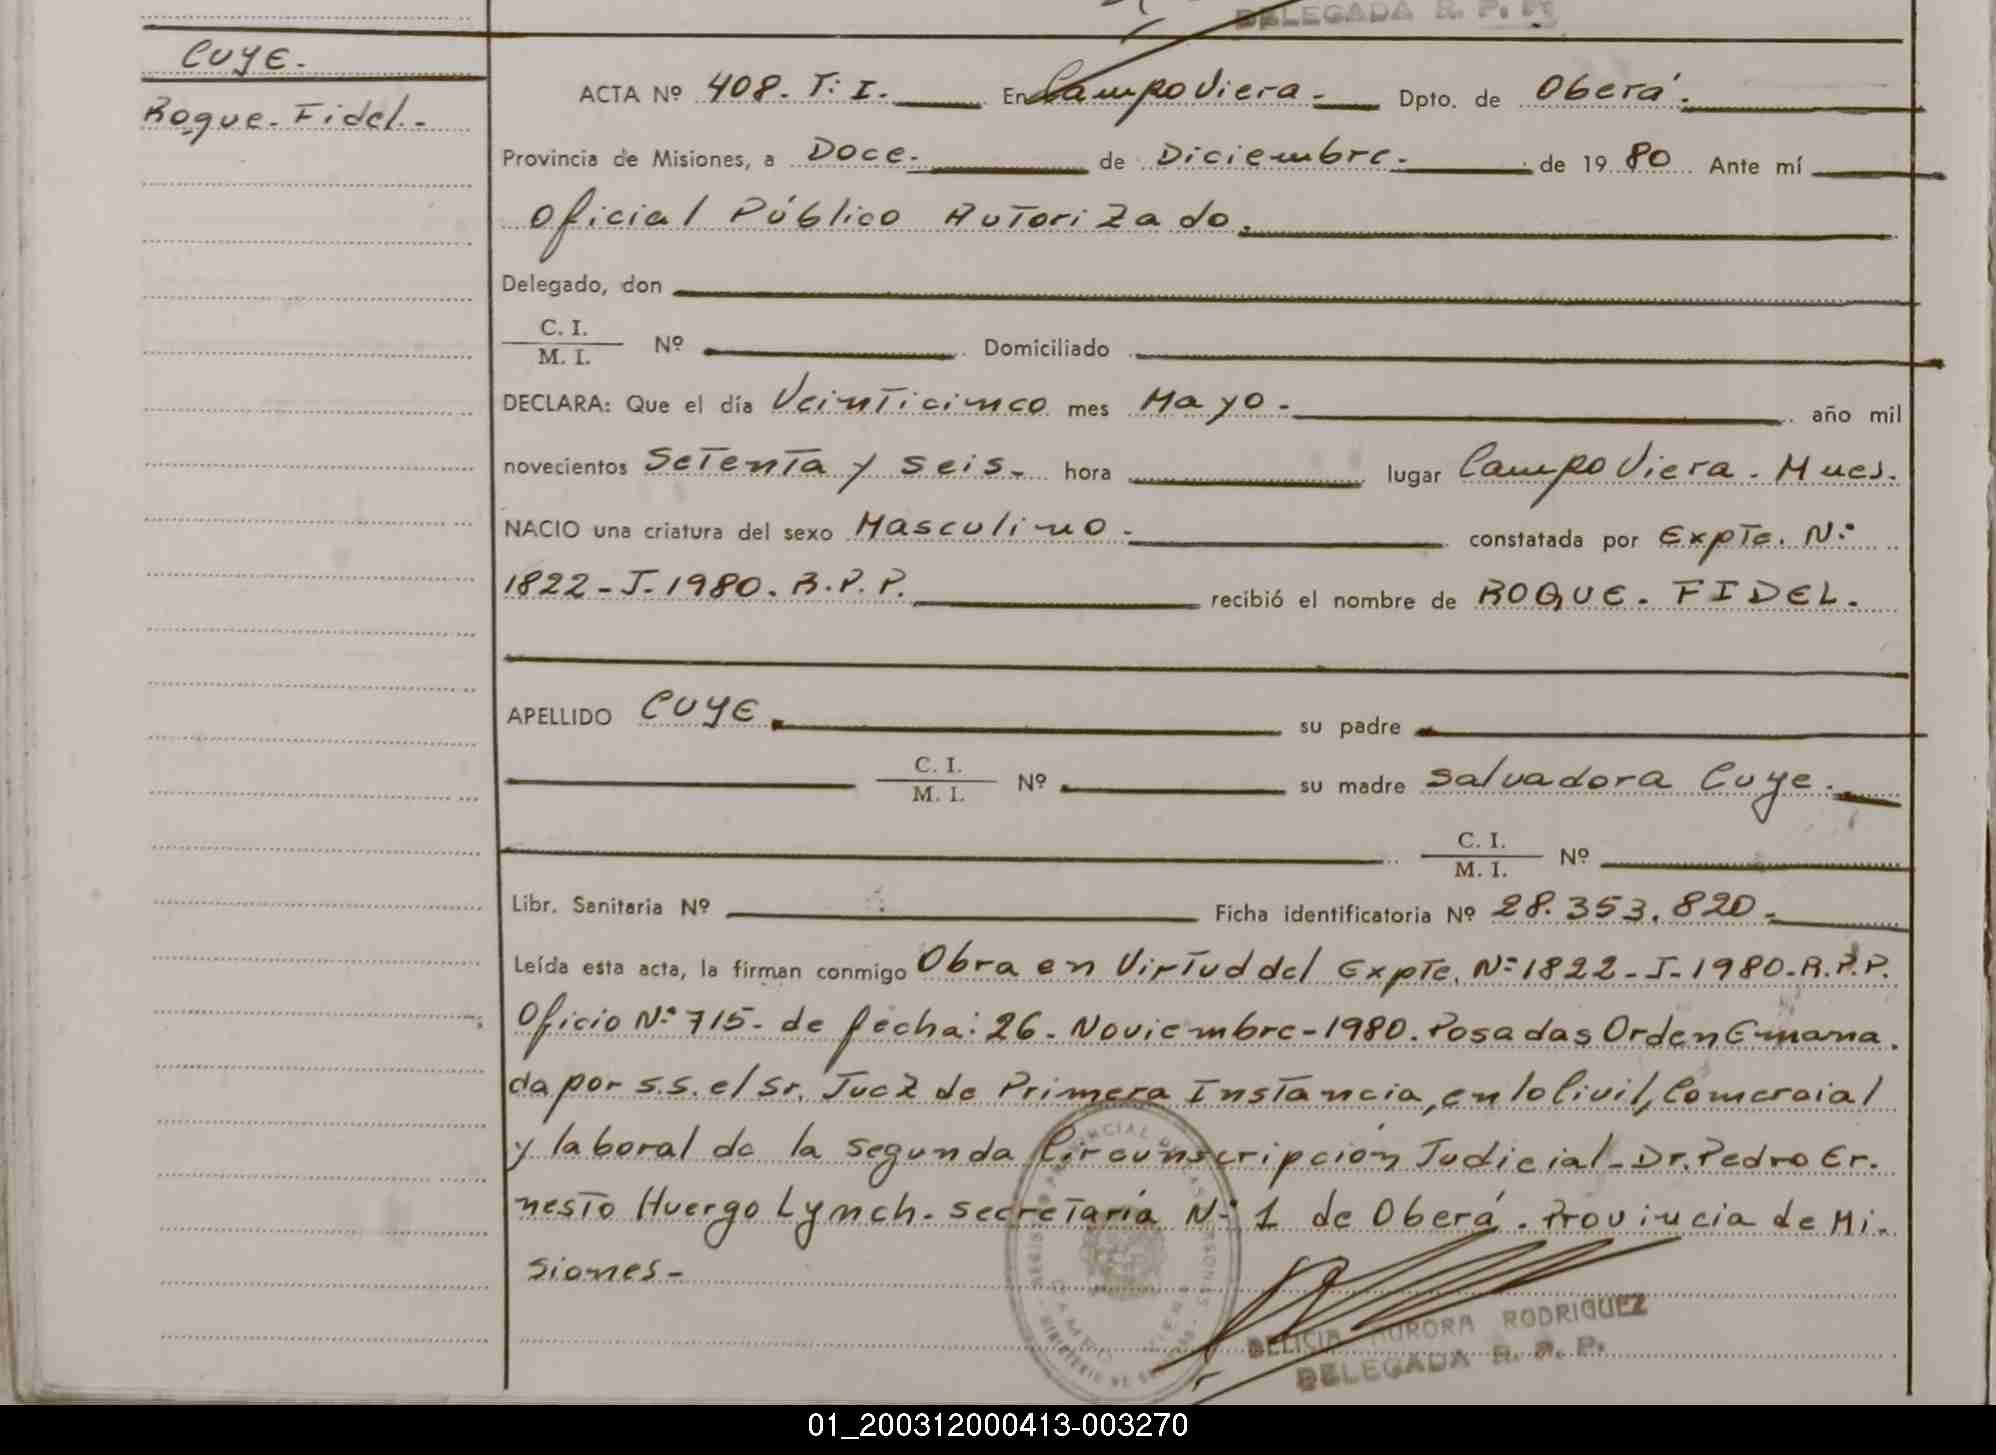 DELEGADA R. P. P.
CUYE.
Roque. Fidel.-
ACTA Nº 408. T: I. En Campo Viera.- Dpto. de Oberá.
Provincia de Misiones, a Doce. de Diciembre. de 1980 Ante mí
Oficial Público Autorizado.
Delegado, don
C. I.
M. I. Nº Domiciliado
DECLARA: Que el día Veinticinco mes Mayo.- año mil
novecientos Setenta y seis.- hora lugar Campo Viera. Mnes.
NACIO una criatura del sexo Masculino.- constatada por Expte. Nº
1822-J-1980. R.P.P. recibió el nombre de ROQUE. FIDEL.
APELLIDO CUYE. su padre
C. I.
M. I. Nº su madre Salvadora Cuye.
C. I.
M. I. Nº
Libr. Sanitaria Nº Ficha identificatoria Nº 28.353.820.-
Leída esta acta, la firman conmigo Obra en Virtud del Expte. Nº 1822-J-1980-R.P.P.
Oficio Nº 715- de fecha: 26. Noviembre-1980. Posadas Orden Emana.
da por S.S. el Sr. Juez de Primera Instancia, en lo Civil, Comercial
y laboral de la Segunda Circunscripción Judicial- Dr. Pedro Er.
nesto Huergo Lynch. Secretaría Nº 1 de Oberá. Provincia de Mi.
siones-
DELICIA AURORA RODRIGUEZ
DELEGADA R. P. P.
01_200312000413-003270